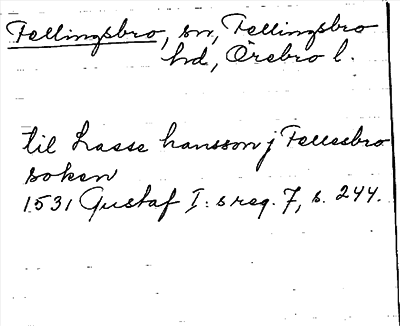 Fellingsbro, sn, Fellingsbro
hd, Örebro l.
til Lasse hansson j Fellesbro
soken
1531 Gustaf I: s reg. 7, s. 244.